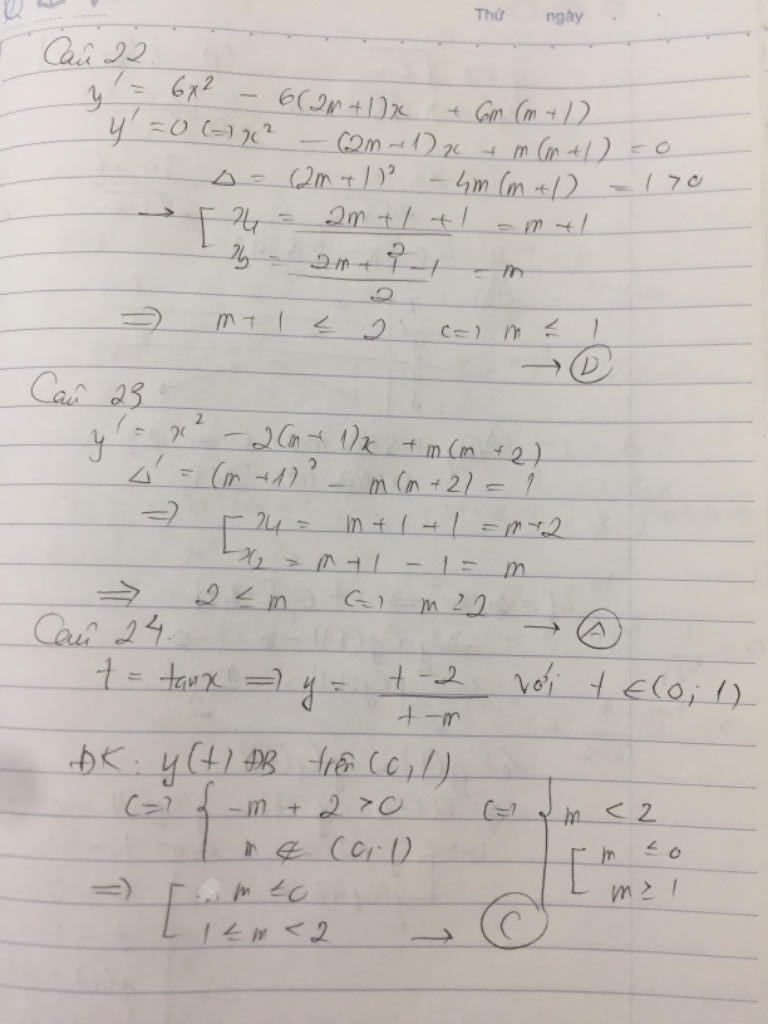 Thứ ngày
Câu 22
y' = 6x² - 6(2m+1)x + 6m(m+1)
y' = 0 <=> x² - (2m+1)x + m(m+1) = 0
Δ = (2m+1)² - 4m(m+1) = 1 > 0
→ [ x₁ = (2m+1+1)/2 = m+1
x₂ = (2m+1-1)/2 = m
=> m+1 ≤ 2 <=> m ≤ 1
→ D
Câu 23
y' = x² - 2(m+1)x + m(m+2)
Δ' = (m+1)² - m(m+2) = 1
=> [ x₁ = m+1+1 = m+2
x₂ = m+1-1 = m
=> 2 ≤ m <=> m ≥ 2
→ A
Câu 24.
t = tanx => y = (t-2)/(t-m) với t ∈ (0; 1)
ĐK: y(t) ĐB trên (0,1)
<=> { -m + 2 > 0 <=> { m < 2
m ∉ (0;1) [ m ≤ 0
m ≥ 1
=> [ m ≤ 0
1 ≤ m < 2 → C